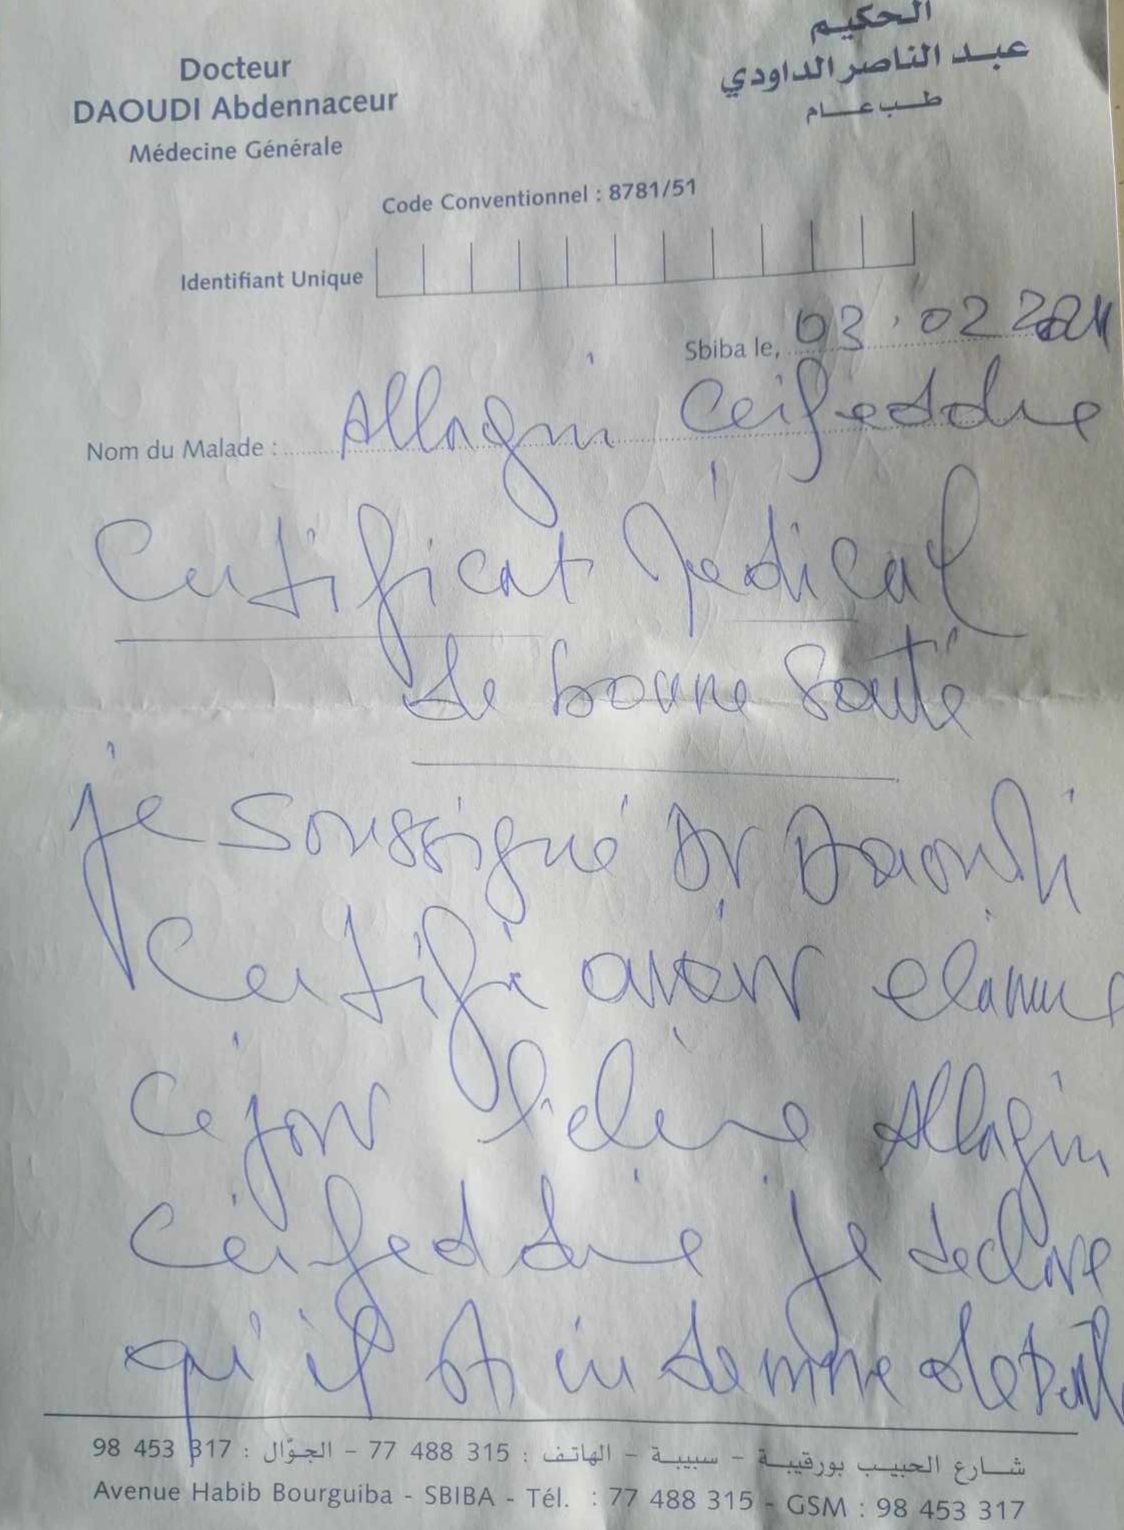 Docteur
DAOUDI Abdennaceur
Médecine Générale
الحكيم
عبد الناصر الداودي
طب عام
Code Conventionnel : 8781/51
Identifiant Unique
Sbiba le, 03.02
Nom du Malade : Allagui Ceifeddine
Certificat Médical
de bonne santé
je soussigné Dr Daoudi
Certifie avoir
Ce jour l'élève Allagui
Ceifeddine je declare
qu'il est indemne de
شارع الحبيب بورقيبة - سبيبة - الهاتف : 315 488 77 - الجوّال : 317 453 98
Avenue Habib Bourguiba - SBIBA - Tél. : 77 488 315 - GSM : 98 453 317